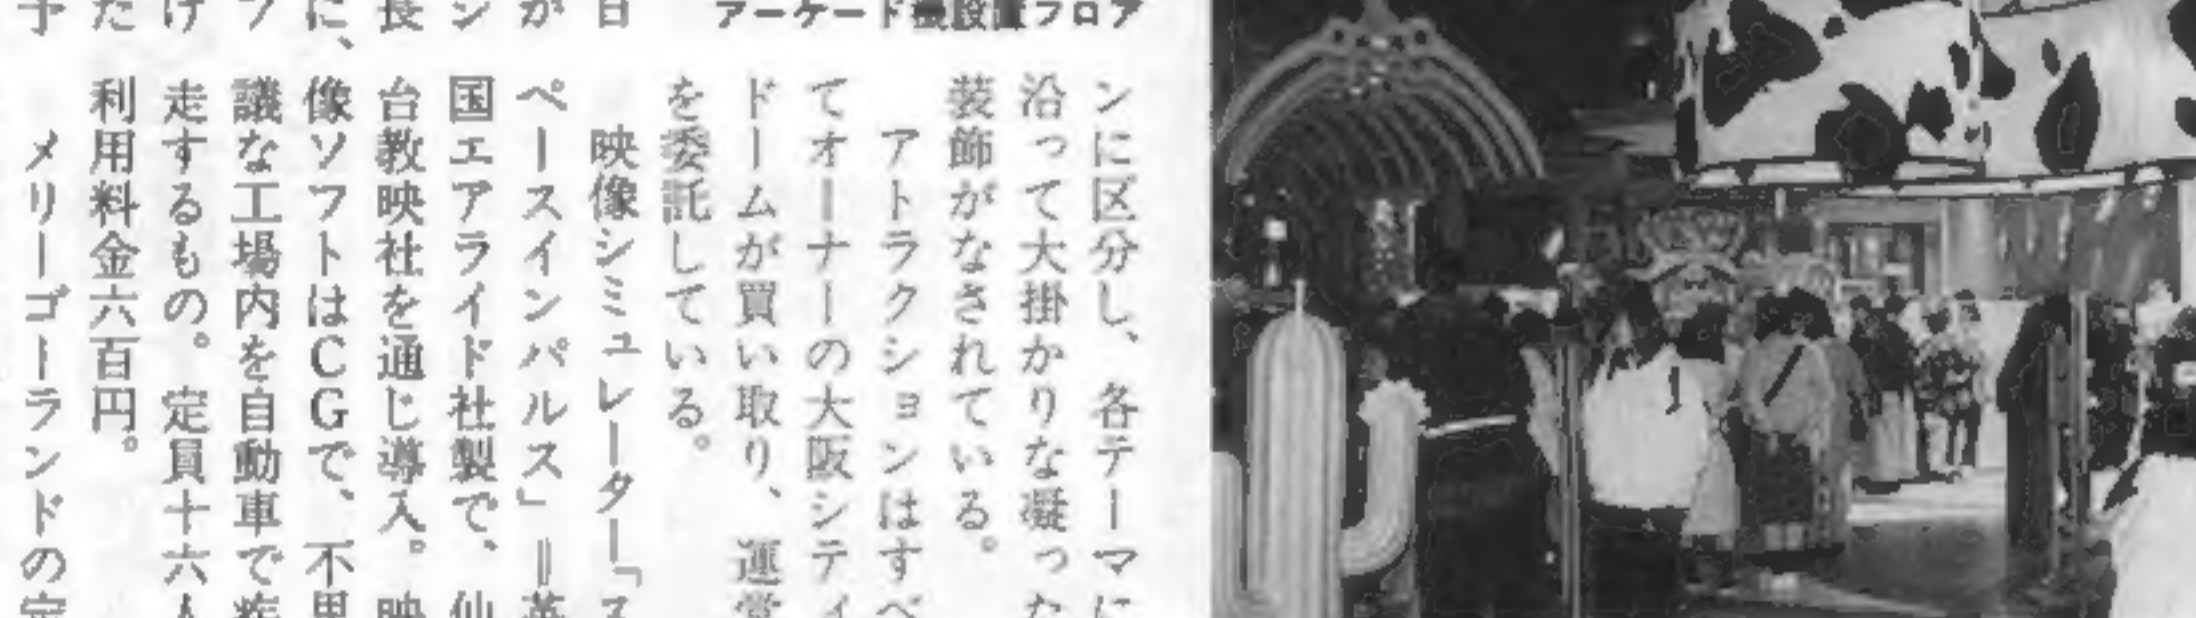 アーケード機設置フロア
ンに区分し、各テーマに
沿って大掛かりな凝った
装飾がなされている。
アトラクションはすべ
てオーナーの大阪シティ
ドームが買い取り、運営
を委託している。
映像シミュレーター「ス
ペースインパルス」＝英
国エアライド社製で、仙
台教映社を通じ導入。映
像ソフトはCGで、不思
議な工場内を自動車で疾
走するもの。定員十六人
利用料金六百円。
メリーゴーランドの定